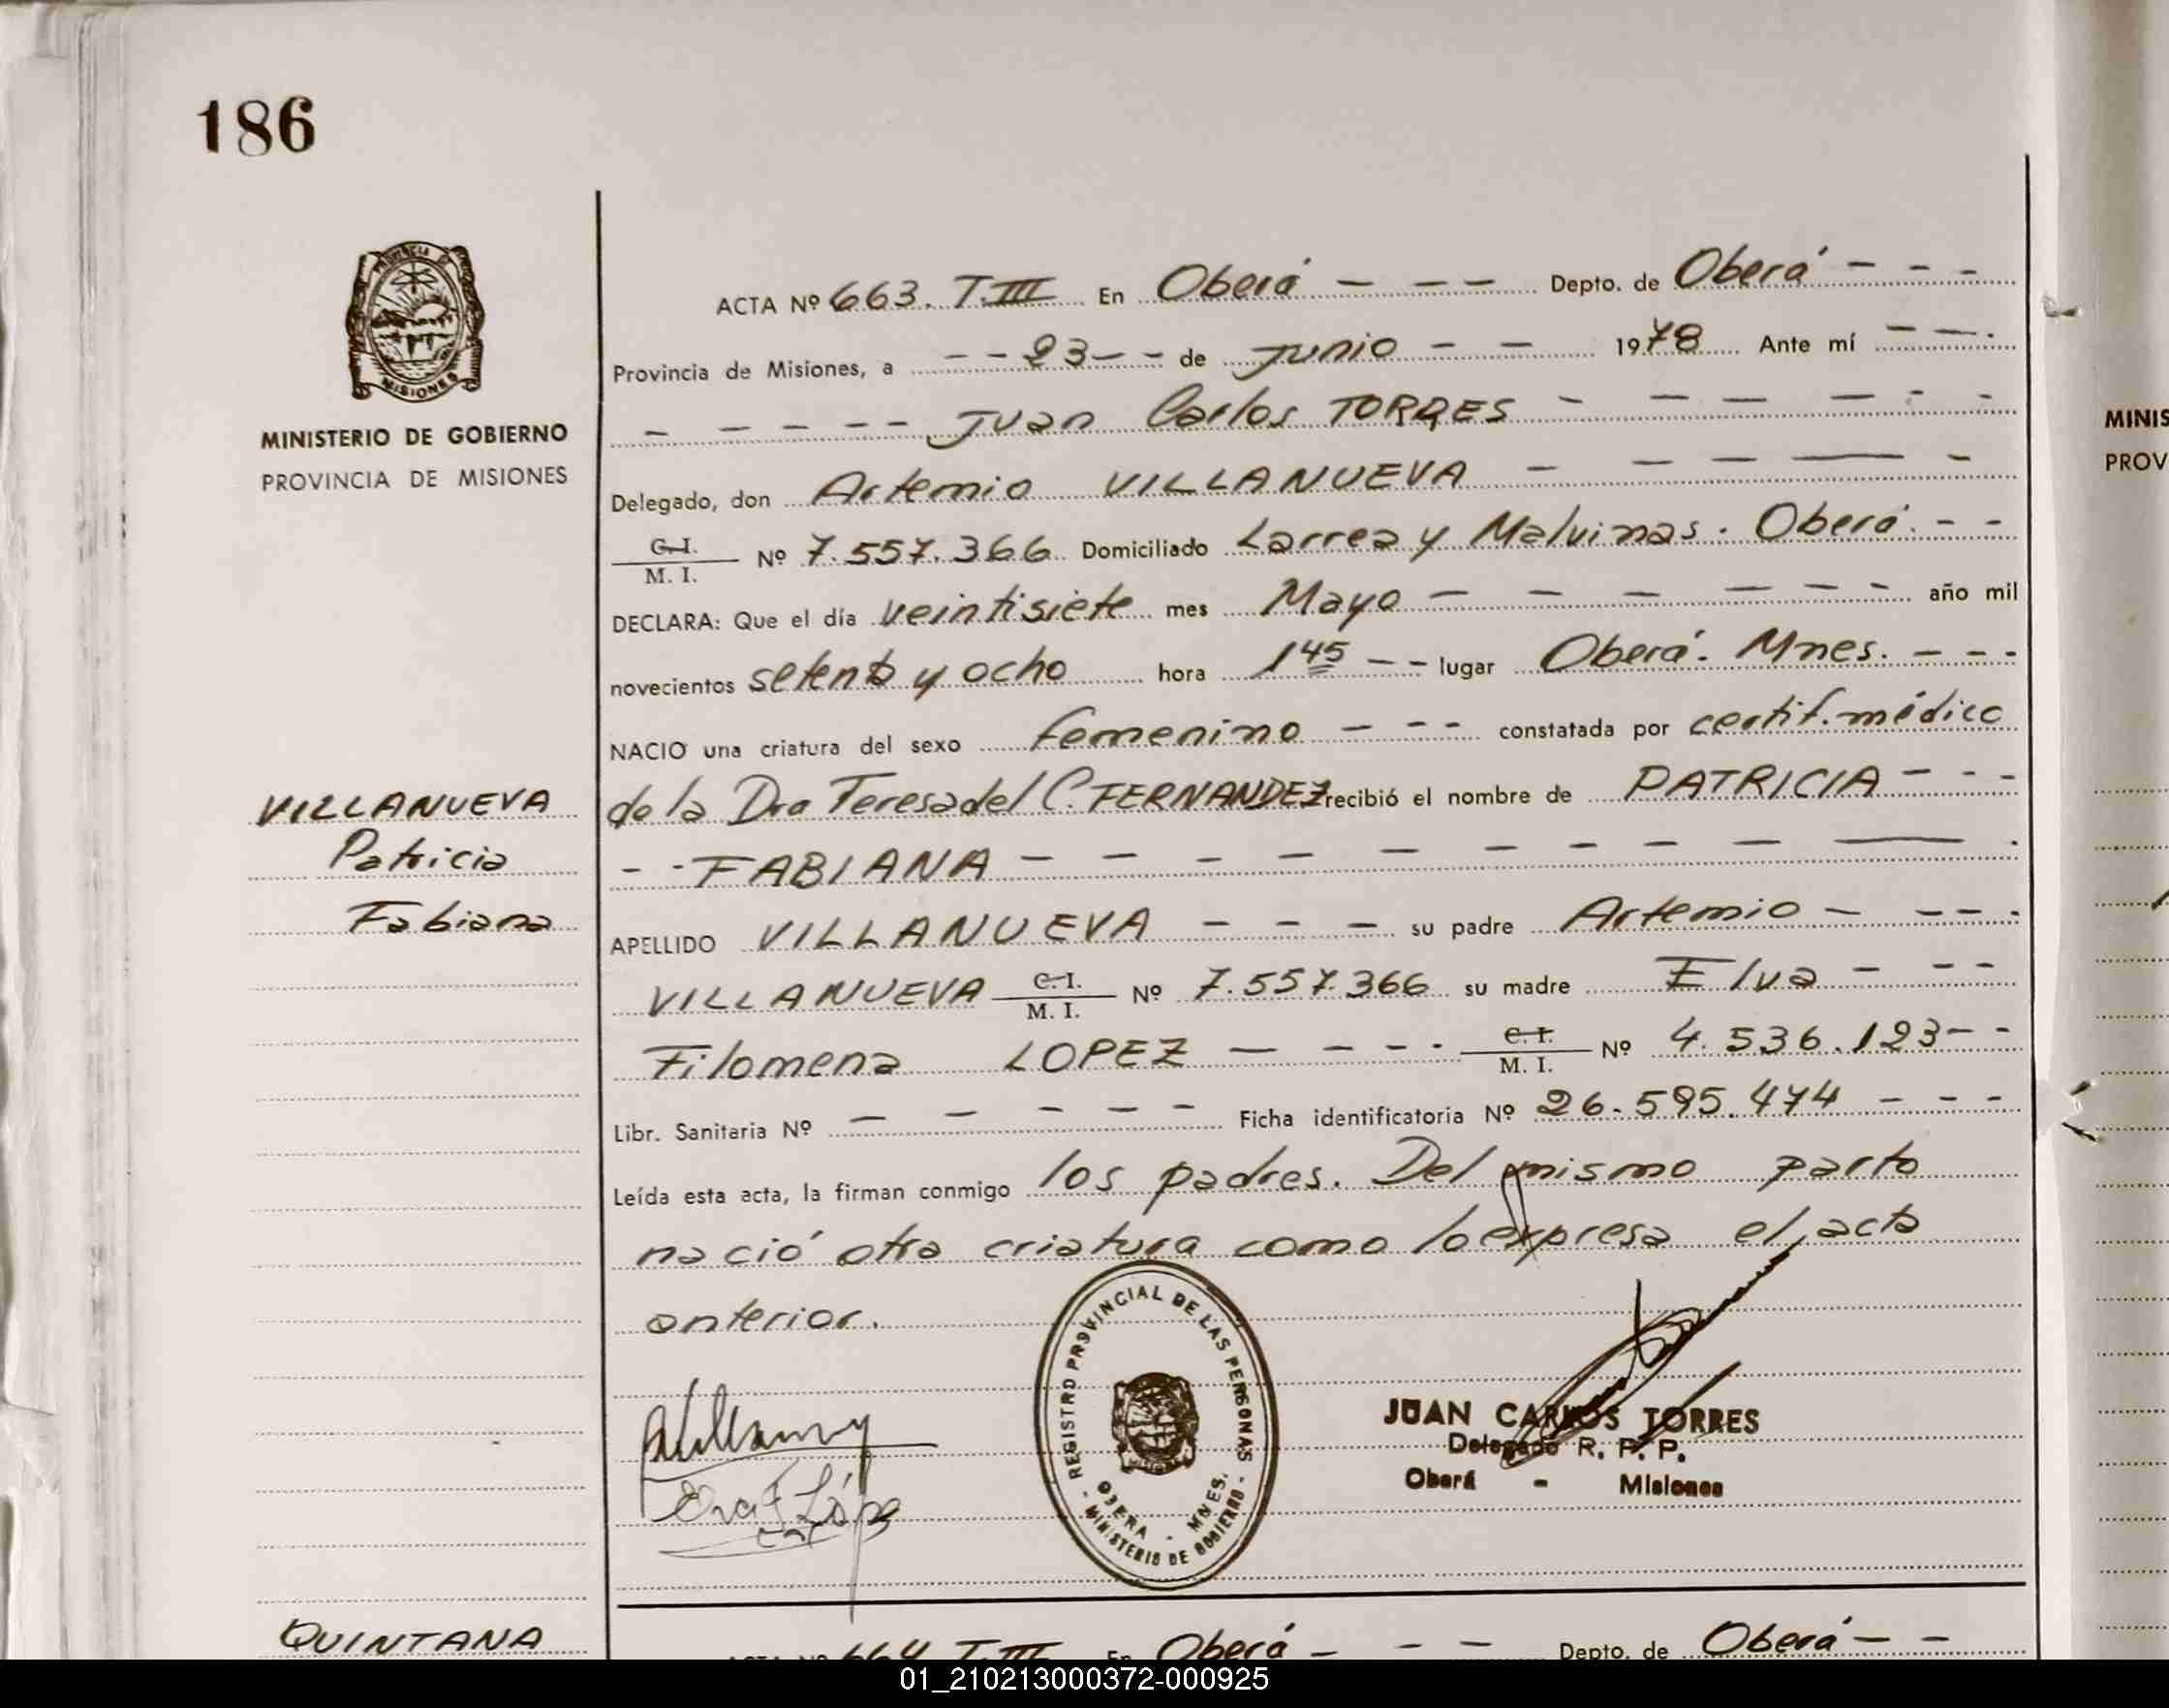 186
PROVINCIA DE
MISIONES
MINISTERIO DE GOBIERNO
PROVINCIA DE MISIONES
VILLANUEVA
Patricia
Fabiana
QUINTANA
ACTA Nº 663. T.III En Oberá - - - Depto. de Oberá - - -
Provincia de Misiones, a - - 23 - - de Junio - - 1978 Ante mí - -
- - - - - - Juan Carlos TORRES - - - - - -
Delegado, don Artemio VILLANUEVA - - - - -
C.I. / M. I. Nº 7.557.366 Domiciliado Larrea y Malvinas. Oberá. - -
DECLARA: Que el día veintisiete mes Mayo - - - - - año mil
novecientos setenta y ocho hora 1 45 - - lugar Oberá. Mnes. - - -
NACIO una criatura del sexo femenino - - - - constatada por certif. médico
de la Dra Teresa del C. FERNANDEZ recibió el nombre de PATRICIA - - -
- - FABIANA - - - - - - - - - -
APELLIDO VILLANUEVA - - - su padre Artemio - - - -
VILLANUEVA C.I. / M. I. Nº 7.557.366 su madre Elva - - -
Filomena LOPEZ - - - - - C.I. / M. I. Nº 4.536.123 - -
Libr. Sanitaria Nº - - - - - Ficha identificatoria Nº 26.595.474 - - -
Leída esta acta, la firman conmigo los padres. Del mismo parto
nació otra criatura como lo expresa el acta
anterior.
REGISTRO PROVINCIAL DE LAS PERSONAS
OBERA - MNES.
- MINISTERIO DE GOBIERNO -
JUAN CARLOS TORRES
Delegado R. P. P.
Oberá - Misiones
ACTA Nº 664 T.III En Oberá - - - Depto. de Oberá - -
MINIS
PROV
01_210213000372-000925